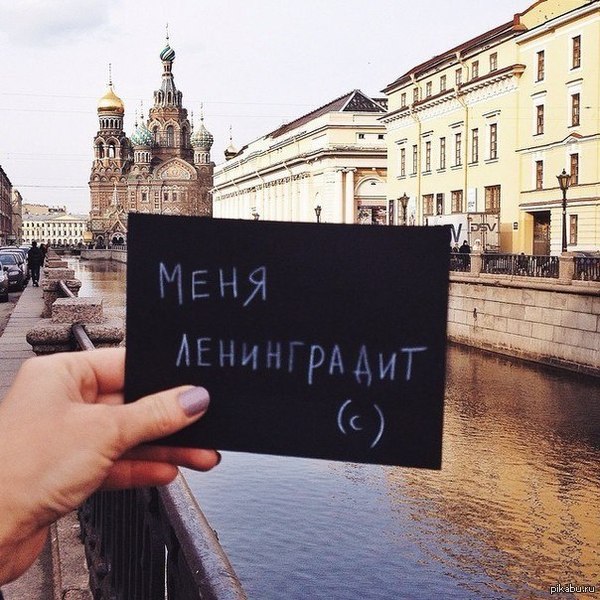 МЕНЯ
ЛЕНИНГРАДИТ
(с)
DSV
pikabu.ru